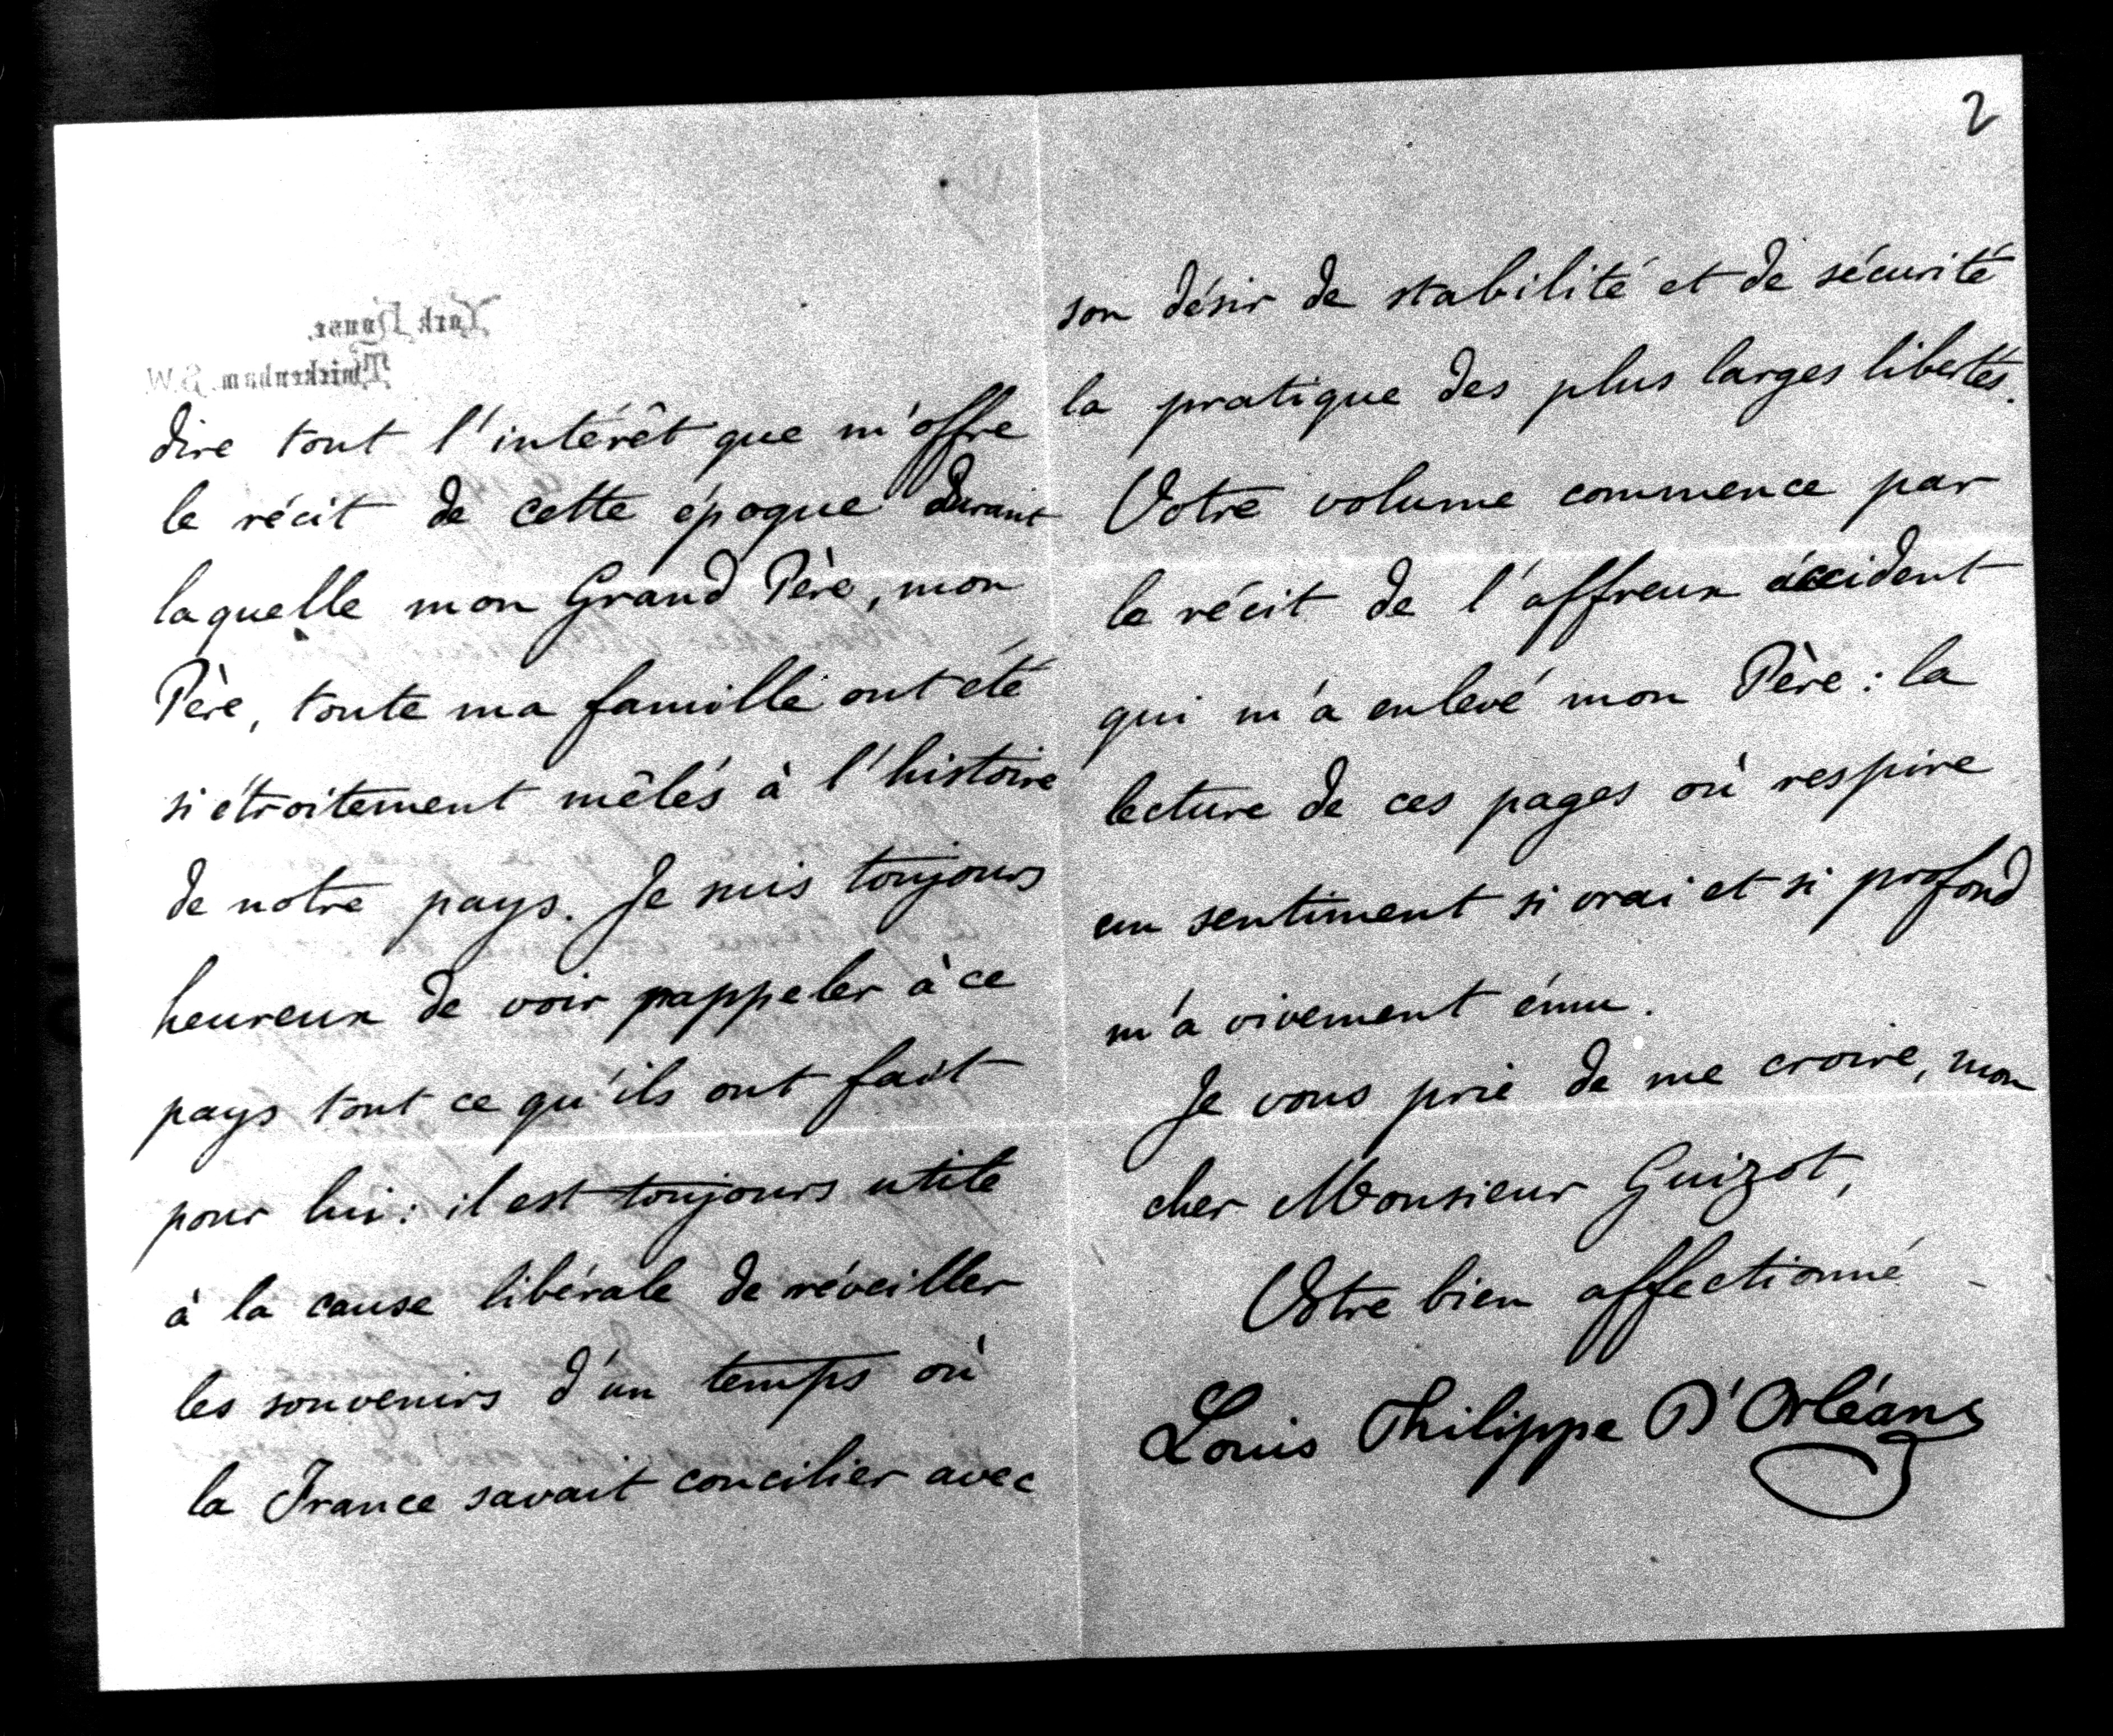 2
York House,
Twickenham. S.W.
dire tout l'intérêt que m'offre
le récit de cette époque durant
laquelle mon Grand Père, mon
Père, toute ma famille ont été
si étroitement mêlés à l'histoire
de notre pays. Je suis toujours
heureux de voir rappeler à ce
pays tout ce qu'ils ont fait
pour lui : il est toujours utile
à la cause libérale de réveiller
les souvenirs d'un temps où
la France savait concilier avec
son désir de stabilité et de sécurité
la pratique des plus larges libertés.
Votre volume commence par
le récit de l'affreux accident
qui m'a enlevé mon Père : la
lecture de ces pages où respire
un sentiment si vrai et si profond
m'a vivement ému.
Je vous prie de me croire, mon
cher Monsieur Guizot,
Votre bien affectionné
Louis Philippe D'Orléans